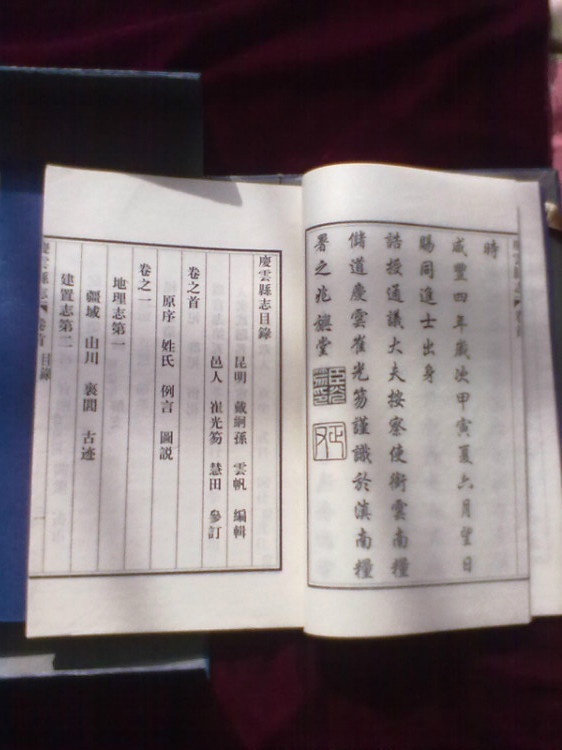 時
咸豐四年歲次甲寅夏六月望日
賜同進士出身
誥授通議大夫按察使銜雲南糧
儲道慶雲崔光笏謹識於滇南糧
署之兆鏌堂
慶雲縣志目錄
昆明 戴絅孫 雲帆 編輯
邑人 崔光笏 慧田 參訂
卷之首
原序 姓氏 例言 圖說
卷之一
地理志第一
疆域 山川 裏閭 古迹
建置志第二
慶雲縣志 卷首 目錄